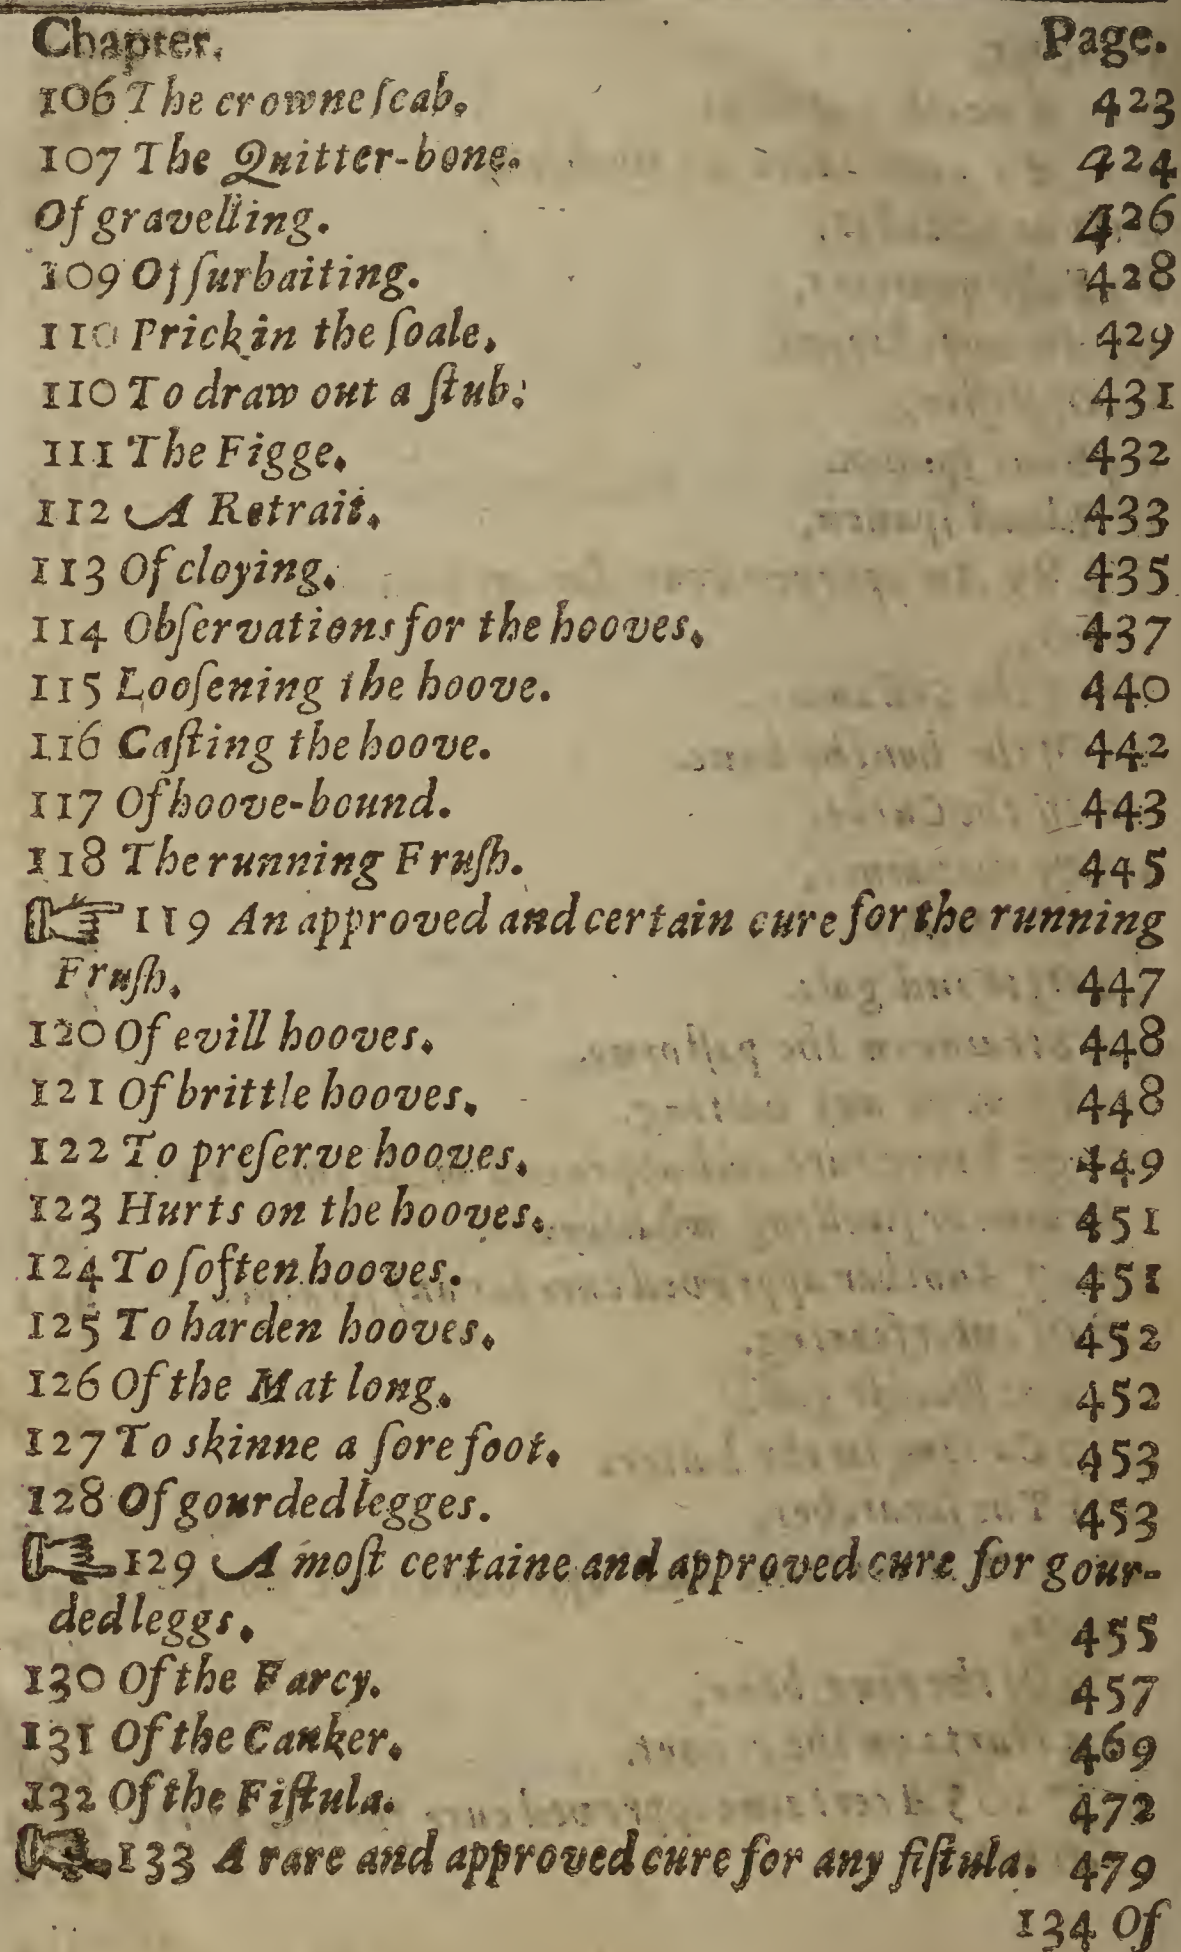 Chapter. Page.
106 The crowne ſcab. 423
107 The Quitter-bone. 424
Of gravelling. 426
109 Of ſurbaiting. 428
110 Prick in the ſoale. 429
110 To draw out a ſtub: 431
111 The Figge. 432
112 A Retrait. 433
113 Of cloying. 435
114 Obſervations for the hooves. 437
115 Looſening the hoove. 440
116 Caſting the hoove. 442
117 Of hoove-bound. 443
118 The running Fruſh. 445
☞ 119 An approved and certain cure for the running
Fruſh. 447
120 Of evill hooves. 448
121 Of brittle hooves. 448
122 To preſerve hooves. 449
123 Hurts on the hooves. 451
124 To ſoften hooves. 451
125 To harden hooves. 452
126 Of the Mat long. 452
127 To skinne a ſore foot. 453
128 Of gourded legges. 453
☞ 129 A moſt certaine and approved cure for gour-
ded leggs. 455
130 Of the Farcy. 457
131 Of the Canker. 469
132 Of the Fiſtula. 472
☞ 133 A rare and approved cure for any fiſtula. 479
134 Of